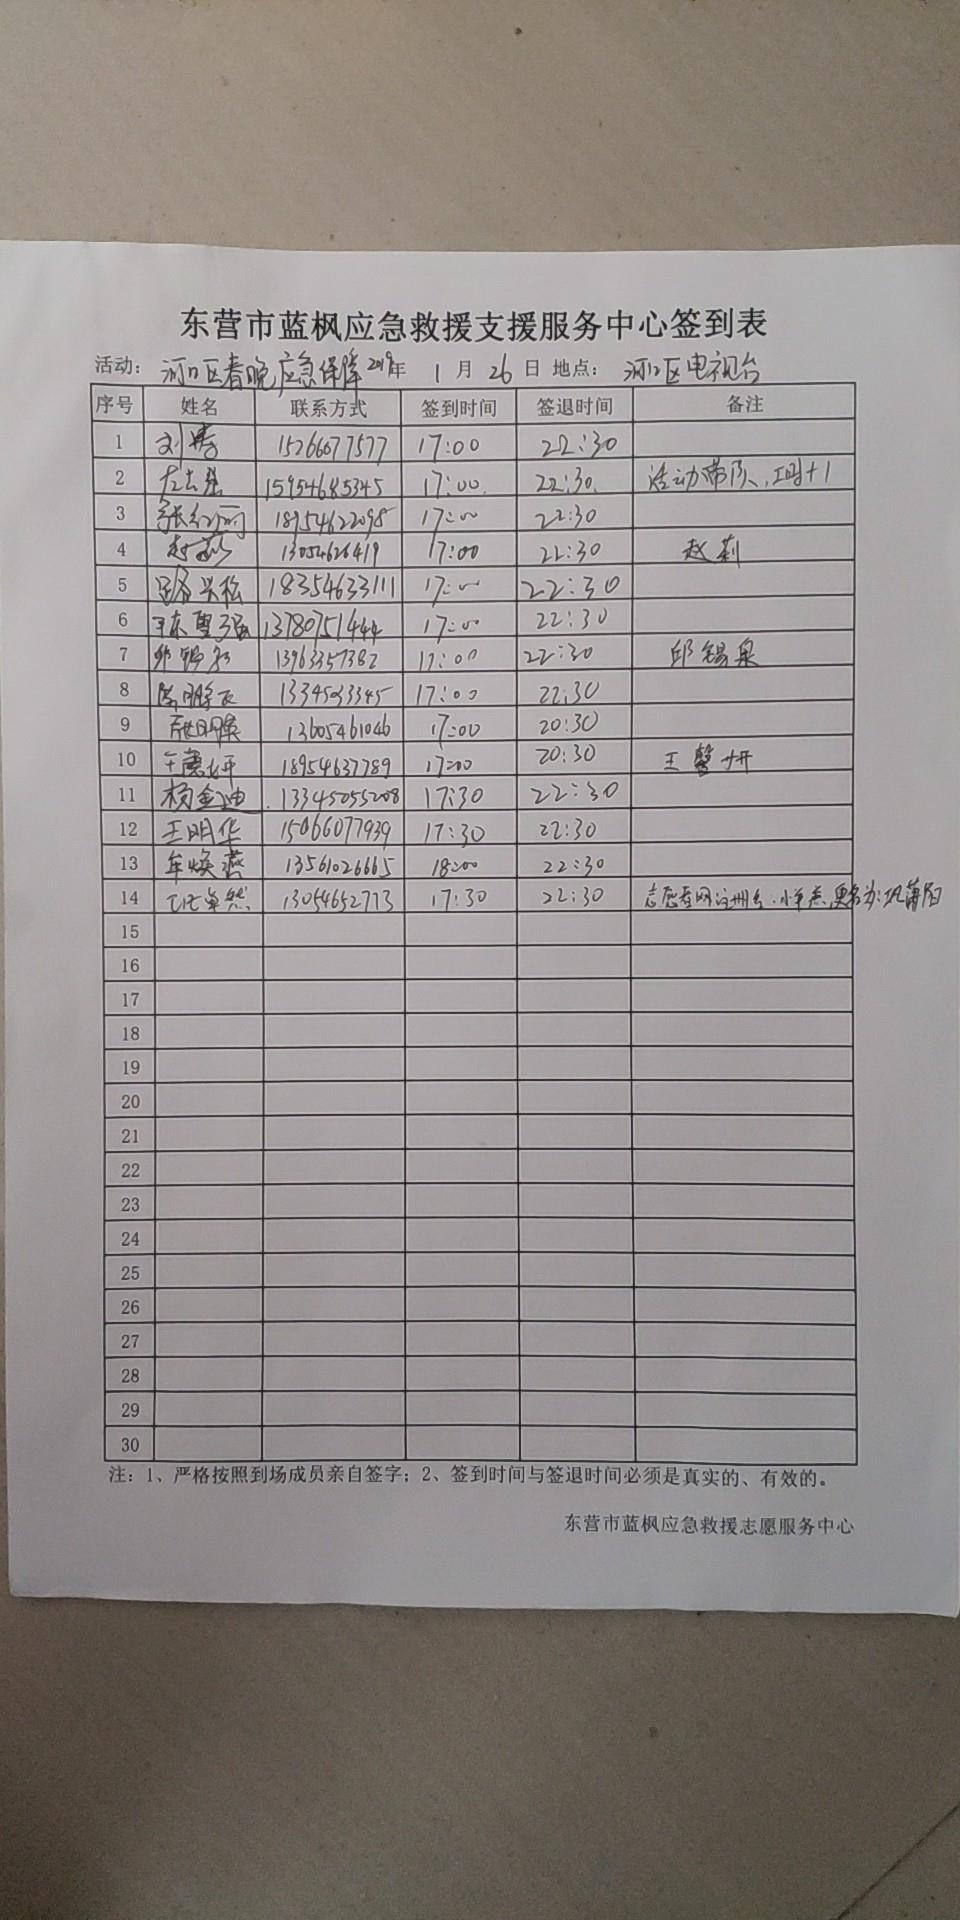 东营市蓝枫应急救援支援服务中心签到表
活动： 河口区春晚应急保障 2019年 1 月 26 日 地点： 河口区电视台
序号 姓名 联系方式 签到时间 签退时间 备注
1 刘 15266077577 17:00 22:30
2 15954685345 17:00 22:30 活动带队、工时+1
3 张红丽 18954622098 17:00 22:30
4 赵莉 13054626419 17:00 22:30 赵莉
5 兴松 18354633111 17:00 22:30
6 13780751444 17:00 22:30
7 邱锡泉 13963357382 17:00 22:30 邱锡泉
8 13345033345 17:00 22:30
9 13605461046 17:00 20:30
10 王馨妍 18954637789 17:00 20:30 王馨妍
11 杨金迪 13345055208 17:30 22:30
12 王明华 15066077939 17:30 22:30
13 牟焕燕 13561026665 18:00 22:30
14 卓然 13054652773 17:30 22:30 志愿者网注册名
15
16
17
18
19
20
21
22
23
24
25
26
27
28
29
30
注：1、严格按照到场成员亲自签字；2、签到时间与签退时间必须是真实的、有效的。
东营市蓝枫应急救援志愿服务中心